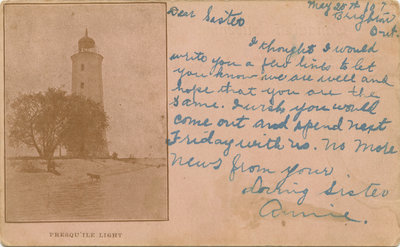 May 28th 1907
Brighton
Ont.
Dear Sister
I thought I would
write you a few lines to let
you know we are well and
hope that you are the
same. I wish you would
come out and spend next
Friday with us. No more
news from your
loving sister
Annie.
PRESQU'ILE LIGHT